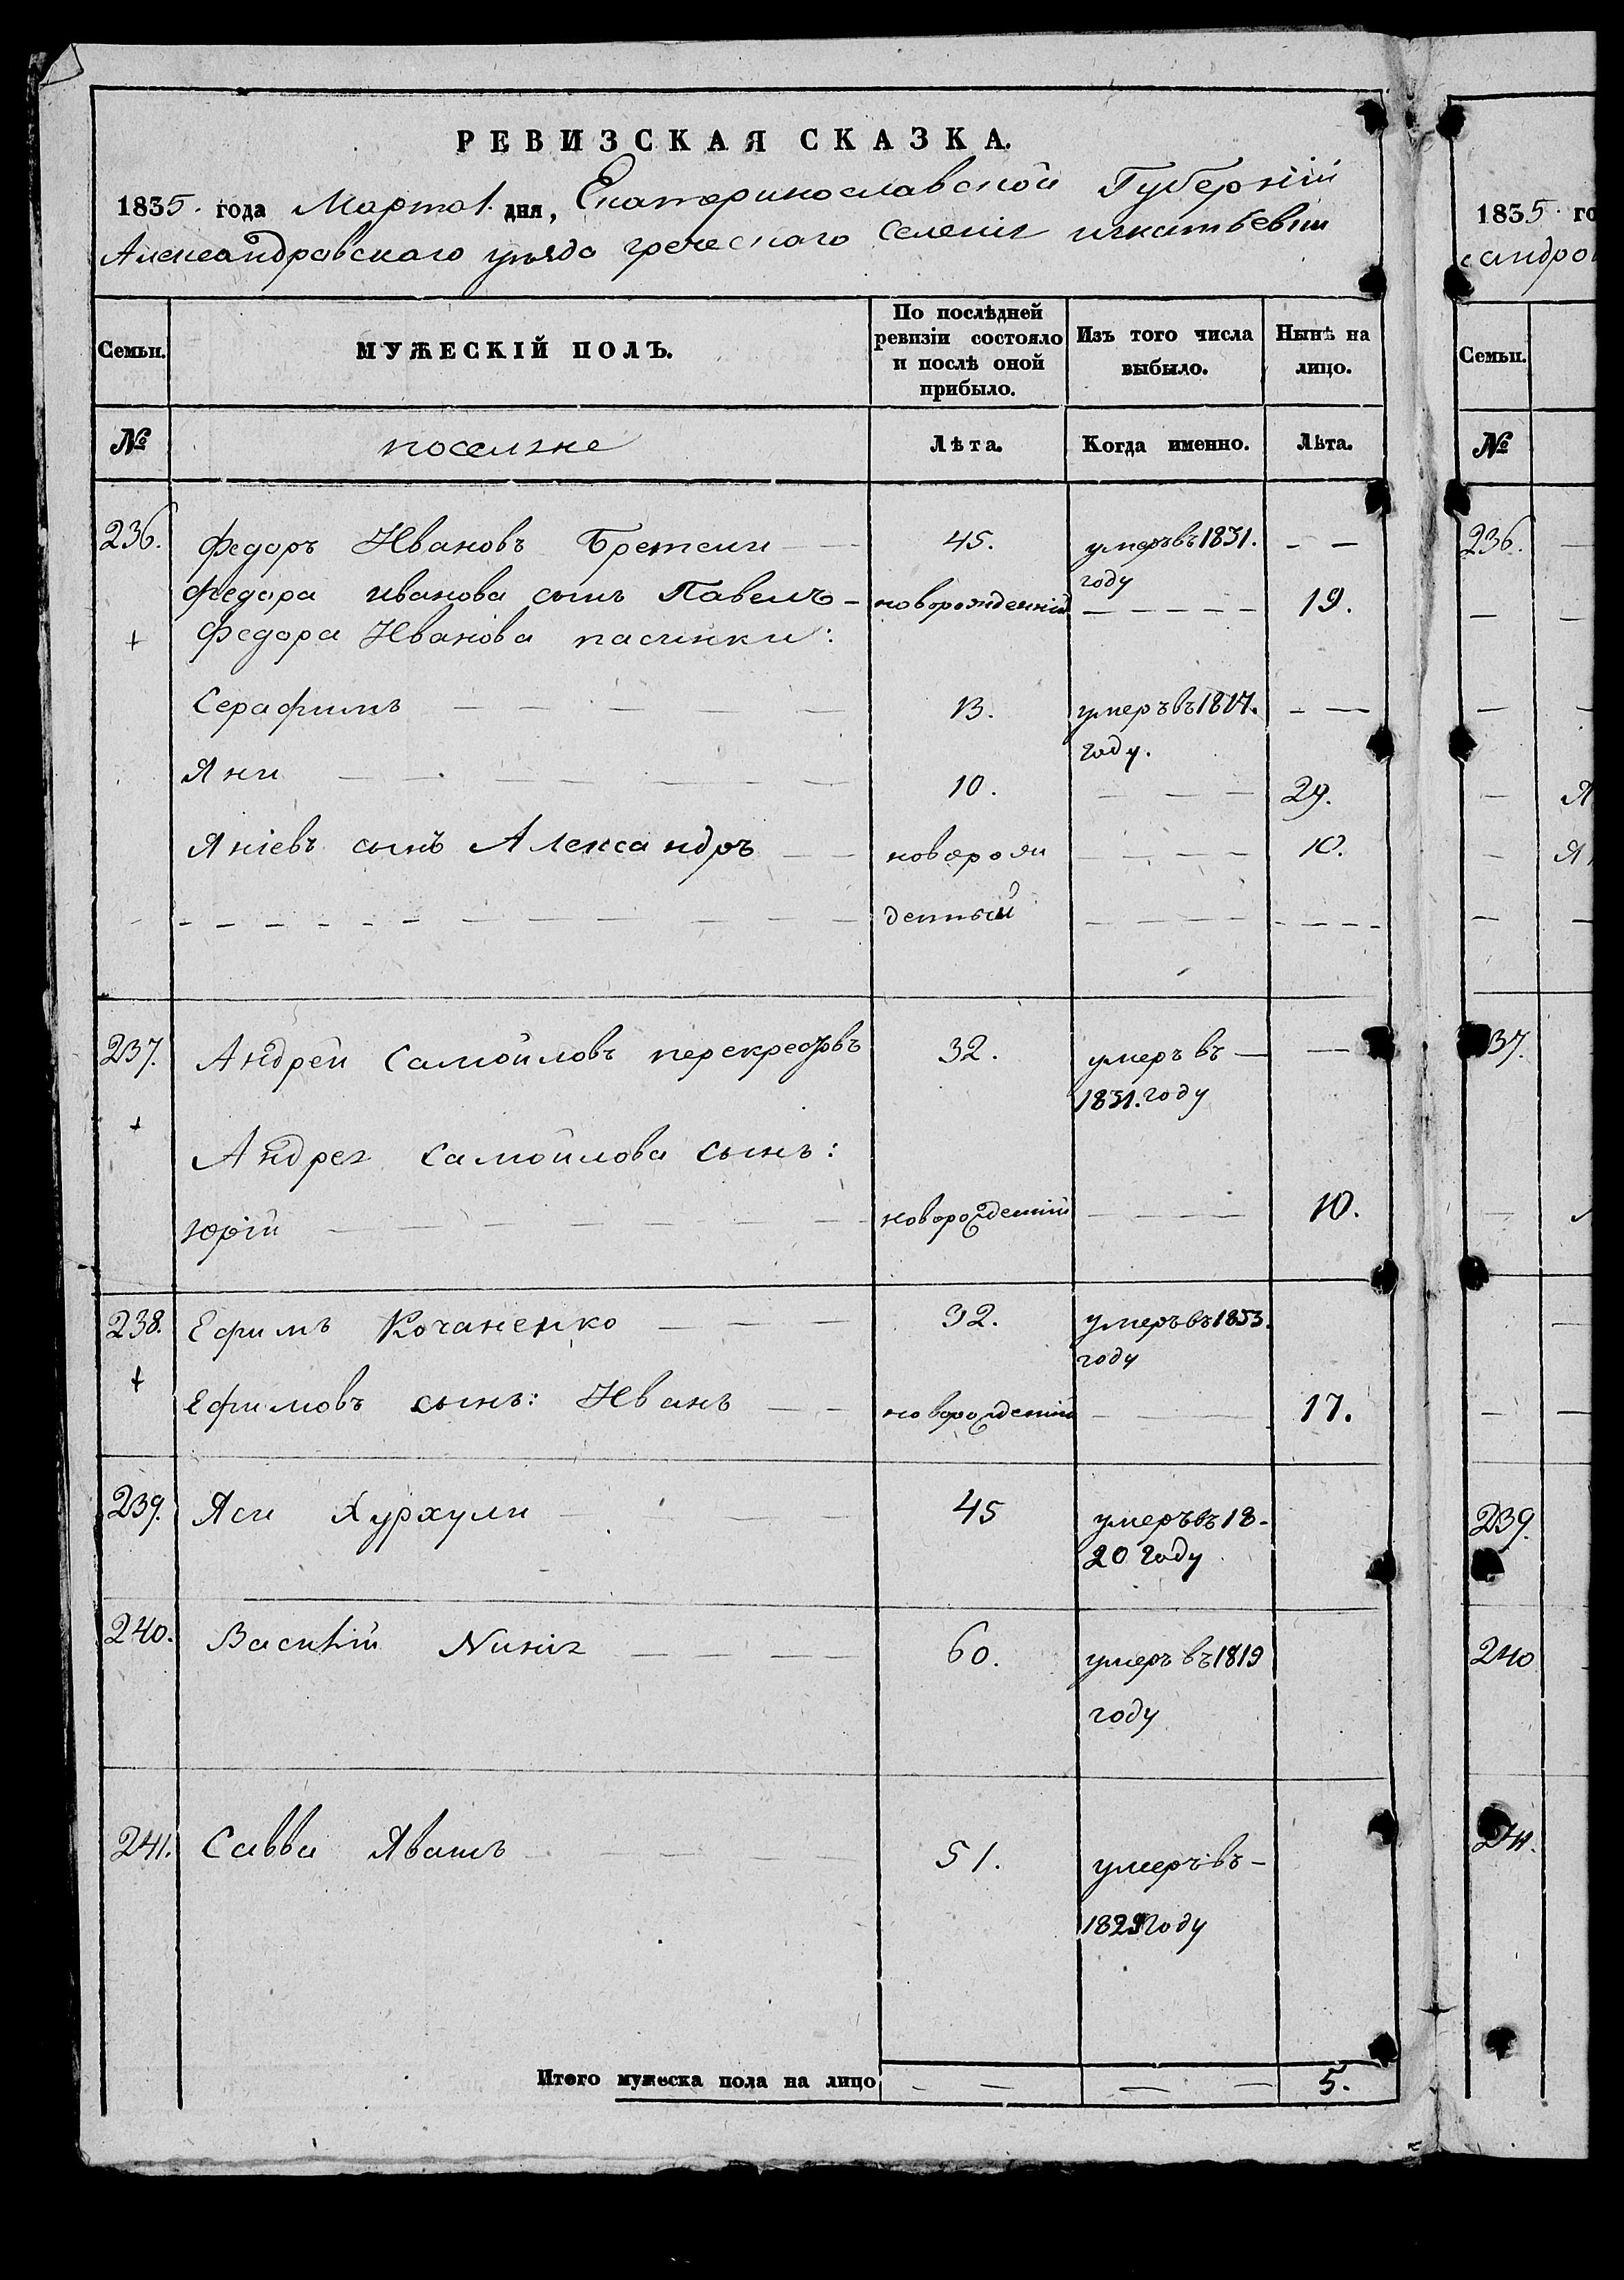 РЕВИЗСКАЯ СКАЗКА.
1835. года Марта 1. дня, Екатеринославской Губерніи
Александравскаго уезда греческаго Селенія игнатьевки
Семьи. МУЖЕСКІЙ ПОЛЪ. По послѣдней ревизіи состояло и послѣ оной прибыло. Изъ того числа выбыло. Нынѣ на лицо.
№ поселяне Лѣта. Когда именно. Лѣта.
236. федоръ Ивановъ Бретени 45. умеръ въ 1831. году
федора иванова сынъ Павелъ новорожденній 19.
федора Иванова пасинки:
Серафимъ 13. умеръ въ 1817. году.
Яни 10. 29.
Яніевъ сынъ Александръ новорож 10.
денный
237. Андрей Самойловъ перекрестовъ 32. умеръ въ
1831. году
Андрея Самойлова сынъ:
юрій новорожденній 10.
238. Ефимъ Кочаненко 32. умеръ въ 1833.
году
Ефимовъ сынъ: Иванъ новорожденній 17.
239. Яси Хурхули 45 умеръ въ 18-
20 году
240. Василій 60. умеръ въ 1819
году
241. Савва Явашъ 51. умеръ въ-
1829 году
Итого мужеска пола на лицо 5.
1835 го
сандро
Семьи.
№
236.
Я
Я
37.
239.
240
241.